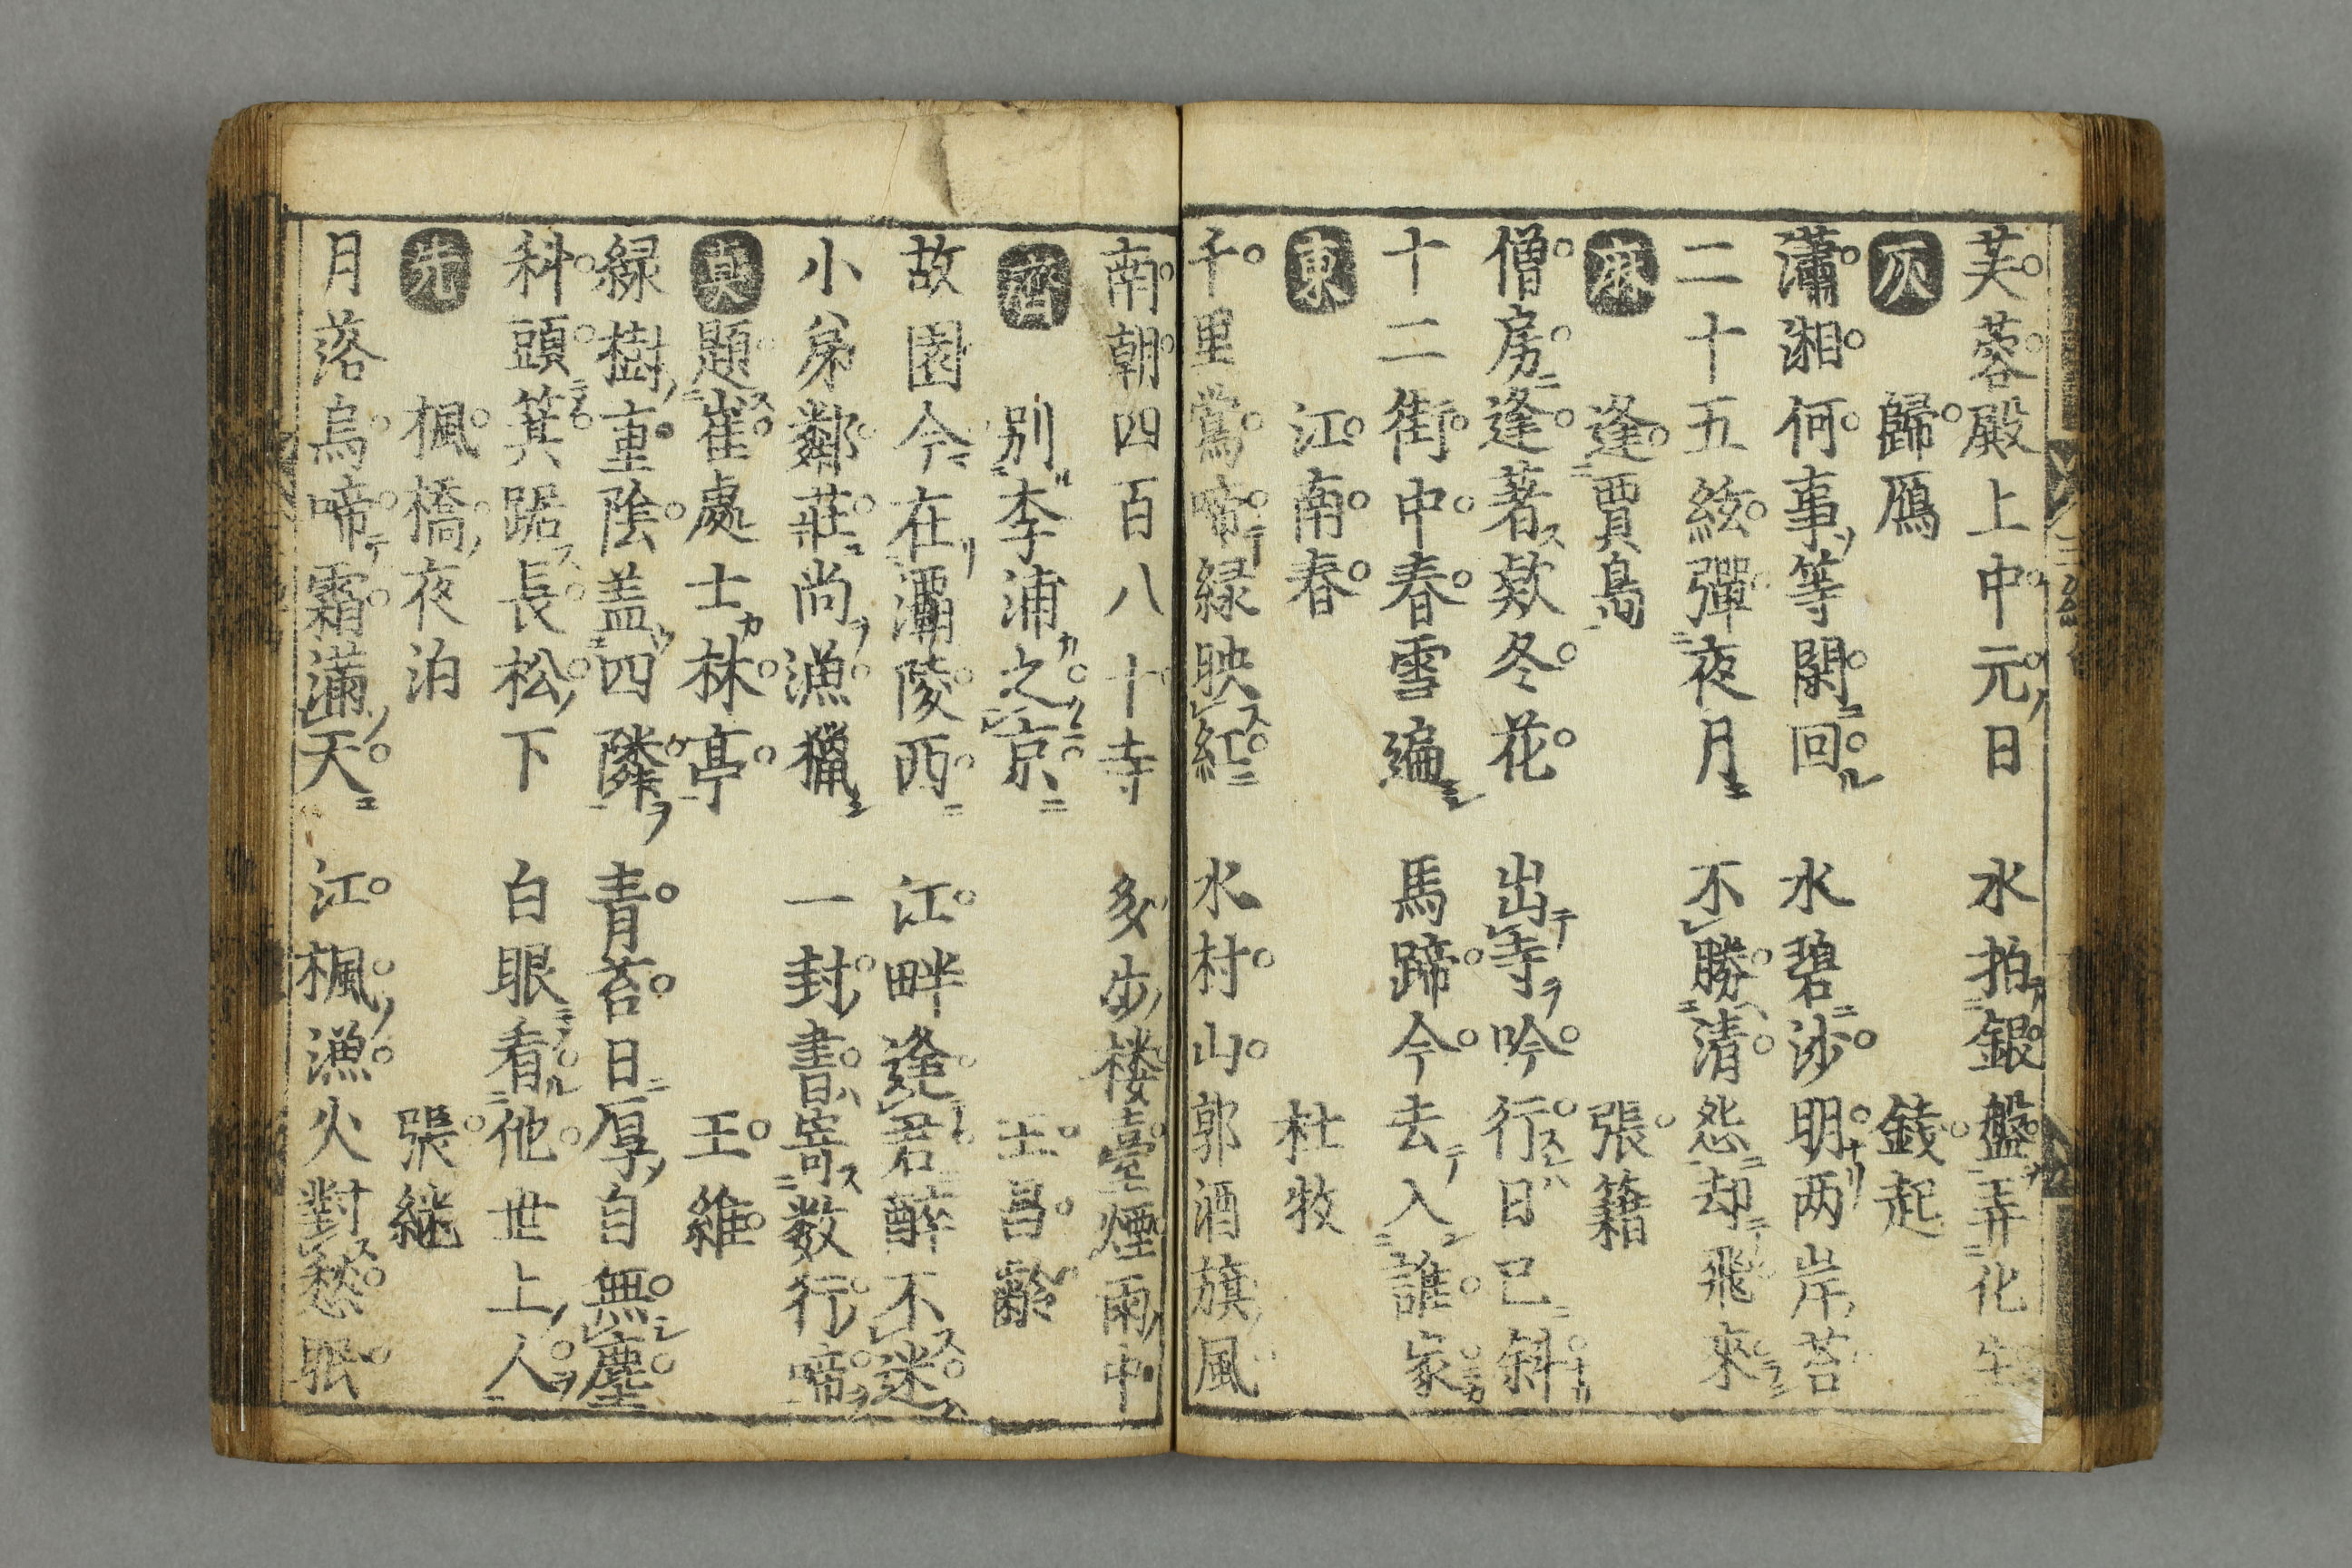 芙蓉殿上中元日 水拍銀盤弄化生
灰 歸鴈 錢起
瀟湘何事等閑回 水碧沙明两岸苔
二十五絃彈夜月 不勝清怨却飛來
麻 逢賈島 張籍
僧房逢著欵冬花 出寺吟行日已斜
十二街中春雪遍 馬蹄今去入誰家
東 江南春 杜牧
千里鶯啼緑映紅 水村山郭酒旗風
南朝四百八十寺 多少楼臺煙雨中
齊 别李浦之京 王昌齡
故園今在灞陵西 江畔逢君醉不迷
小弟鄰莊尚漁獵 一封書寄数行啼
真 題崔處士林亭 王維
緑樹重陰盖四隣 青苔日厚自無塵
科頭箕踞長松下 白眼看他世上人
先 楓橋夜泊 張継
月落烏啼霜滿天 江楓漁火對愁眠